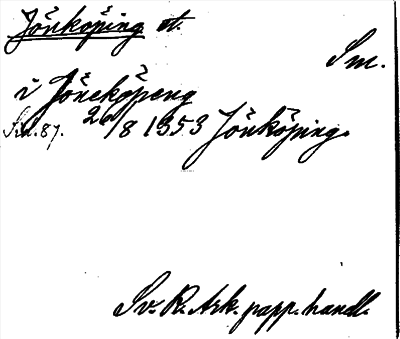 Jönköping st.
Sm.
i Jöneköpeng
S.d. 87. 26/8 1353 Jönköping.
Sv. R. Ark. papp. handl.